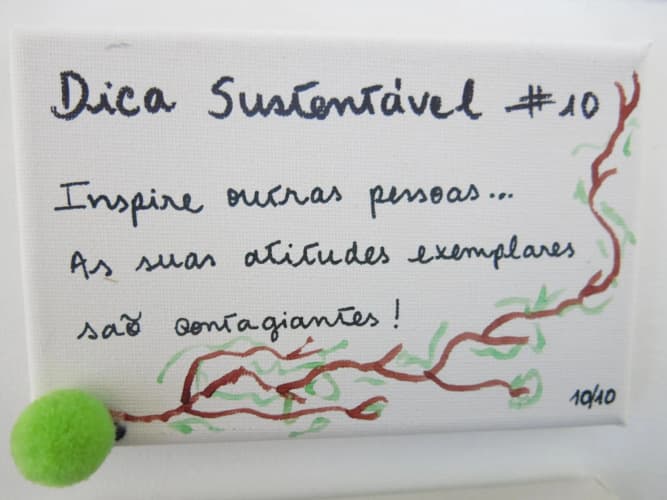 Dica Sustentável #10
Inspire outras pessoas...
As suas atitudes exemplares
saõ contagiantes!
10/10